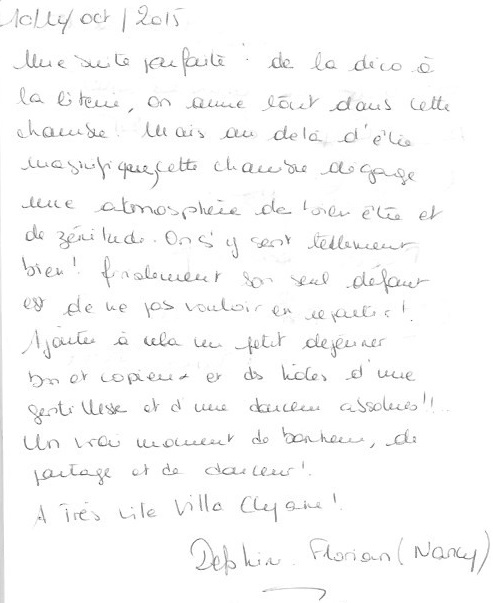 10/14 oct / 2015
Une suite parfaite : de la déco à
la literie, on aime tout dans cette
chambre ! Mais au delà d'être
magnifique, cette chambre dégage
une atmosphère de bien être et
de zénitude. On s'y sent tellement
bien ! finalement son seul défaut
est de ne pas vouloir en repartir !
Ajouter à cela un petit déjeuner
bon et copieux et ds hôtes d'une
gentillesse et d'une douceur absolues !!
Un vrai moment de bonheur, de
partage et de douceur !
A Très vite Villa !
Florian (Nancy)